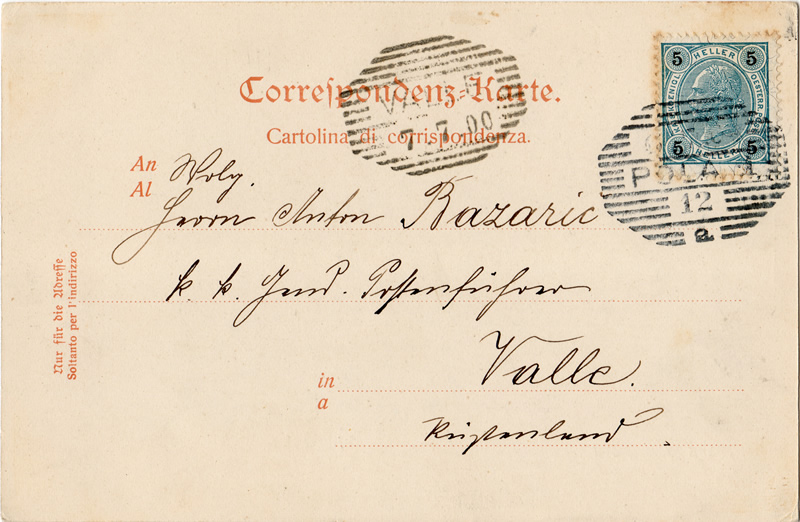 Correspondenz-Karte.
Cartolina di corrispondenza.
VALLE
7.7.00
5 HELLER 5
5 HELLER 5
POLA 1
12
a
An
Al
Wolg.
Herrn Anton Bazaric
k. k. Gend. Postenführer
in
a
Valle.
Küstenland.
Nur für die Adresse
Soltanto per l'indirizzo